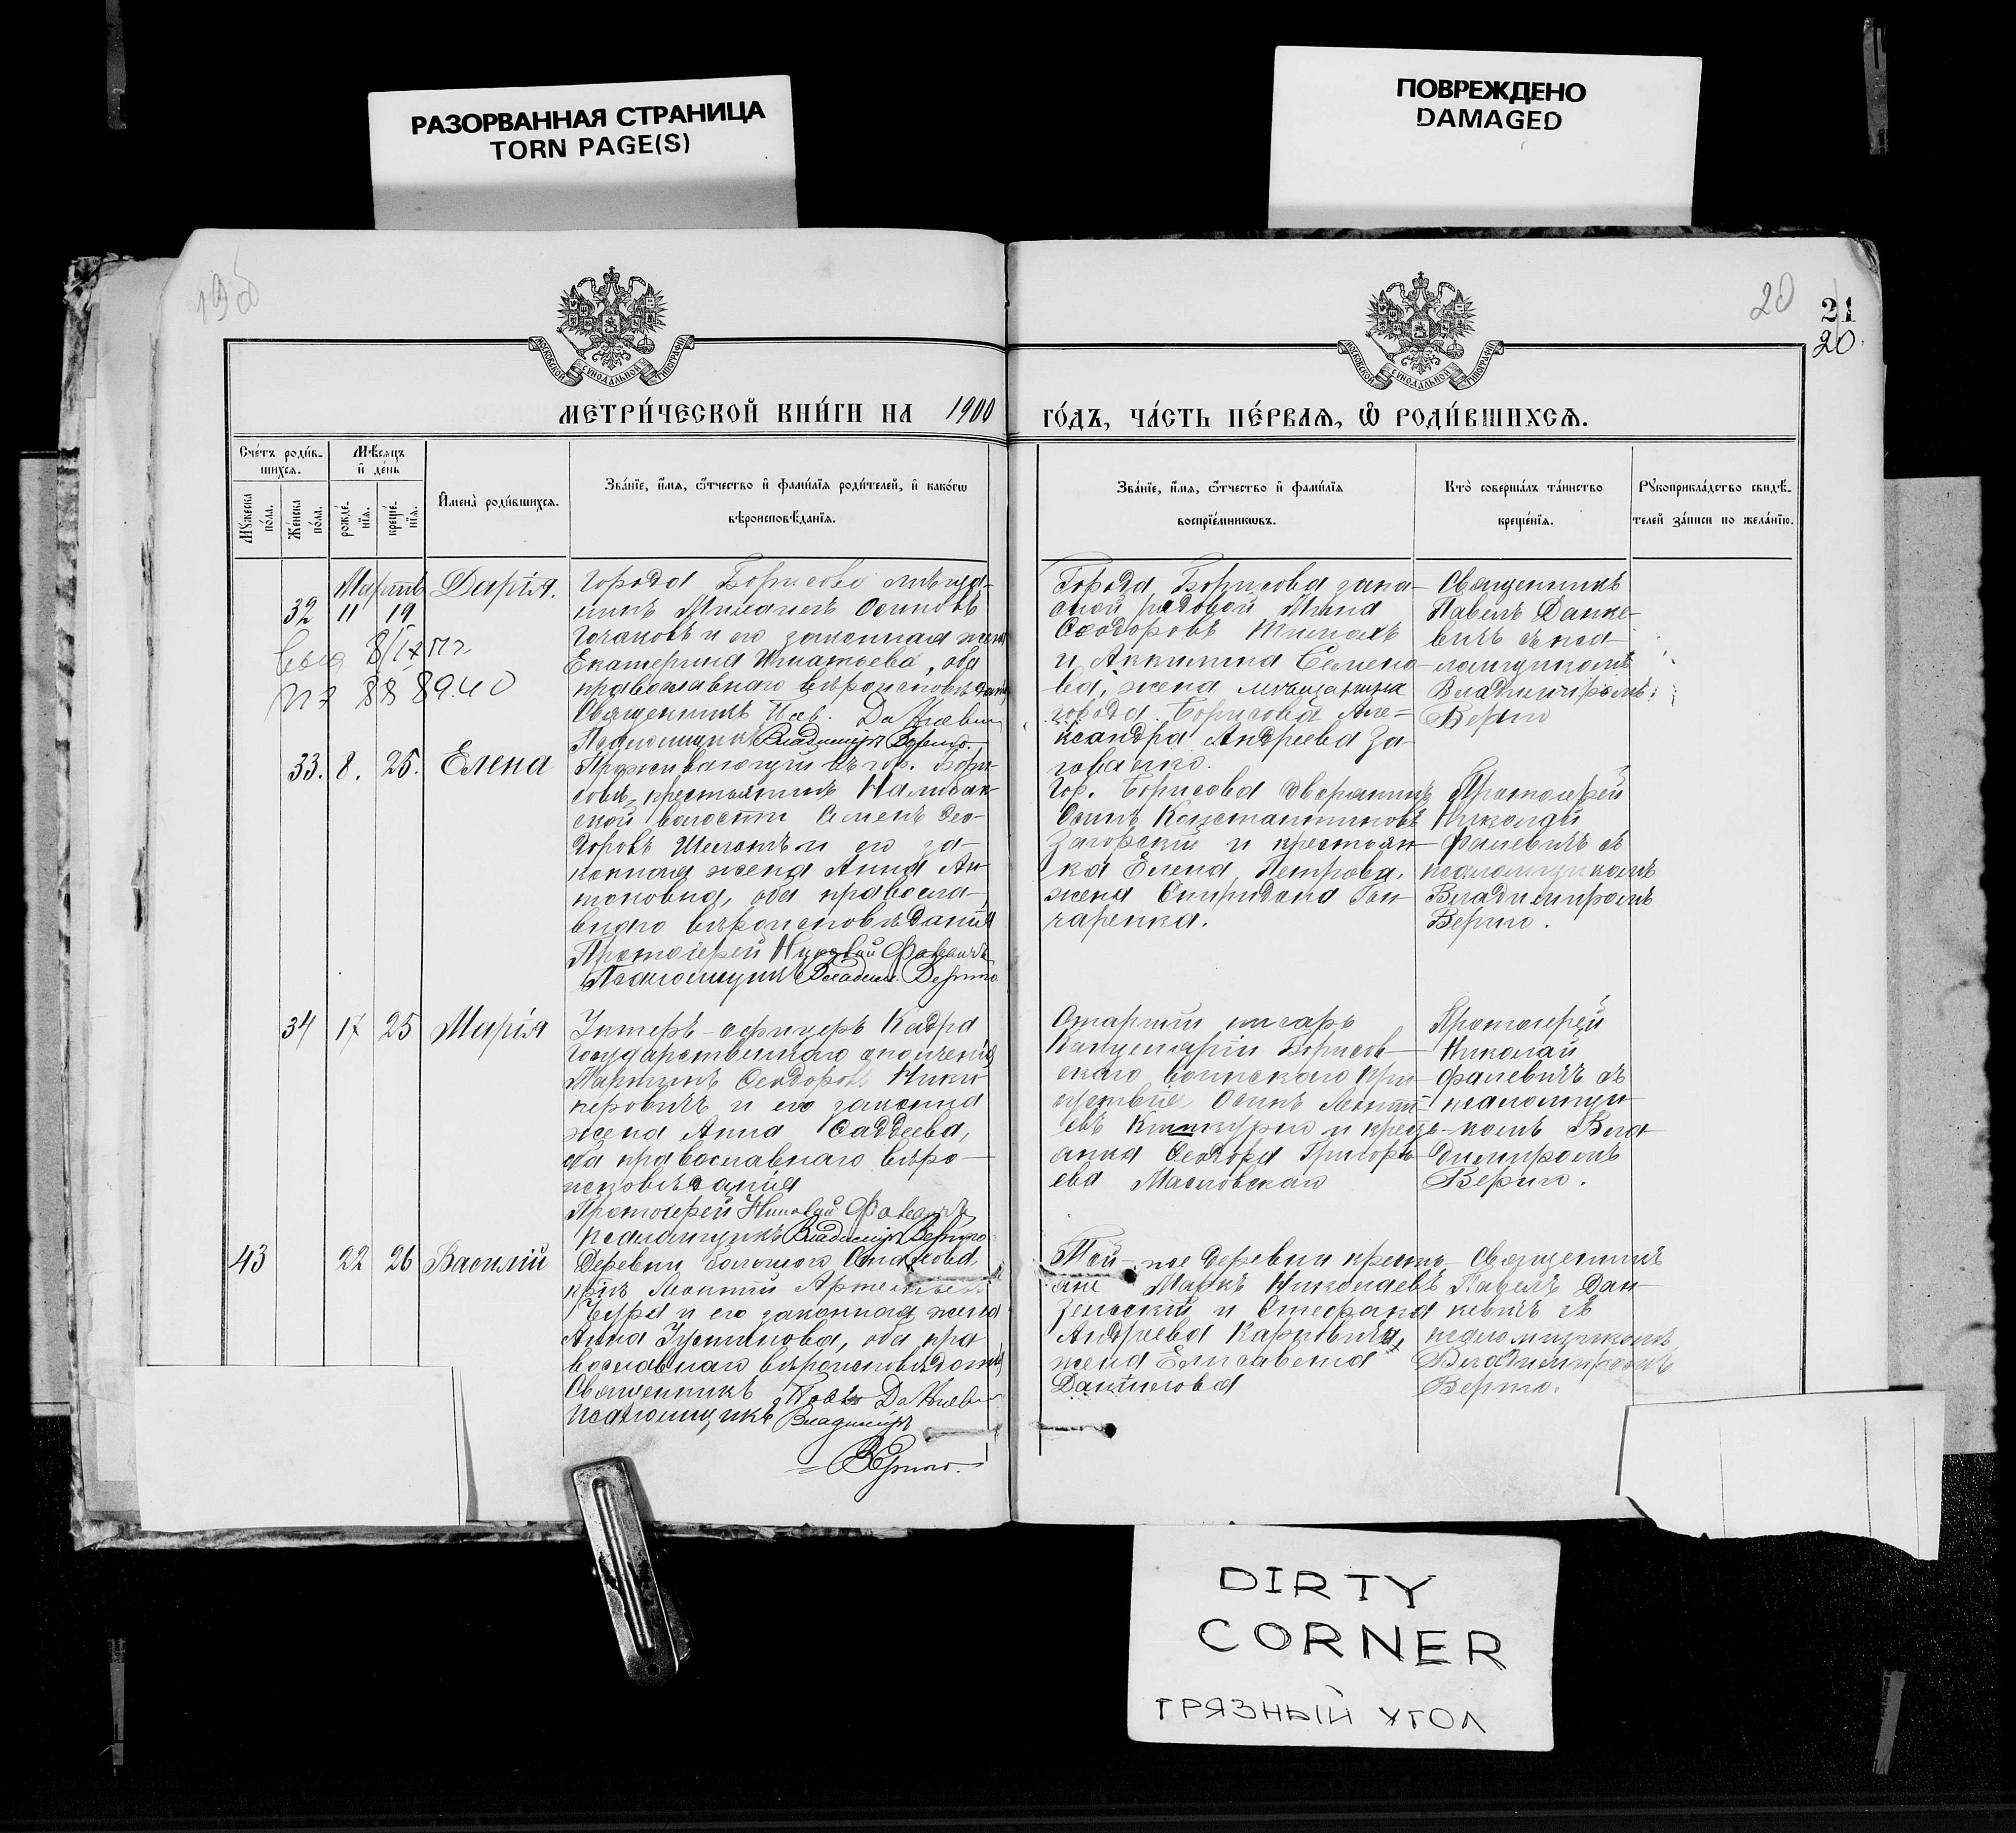 РАЗОРВАННАЯ СТРАНИЦА
TORN PAGE(S)
ПОВРЕЖДЕНО
DAMAGED
20
21
20.
МОСКОВСКОЙ СУНОДАЛЬНОЙ ТИПОГРАФІИ
МОСКОВСКОЙ СУНОДАЛЬНОЙ ТИПОГРАФІИ
МЕТРИ́ЧЕСКОЙ КНИ́ГИ НА 1900
ГО́ДЪ, ЧА́СТЬ ПЕ́РВАЯ, Ѡ РОДИ́ВШИХСѦ.
Сче́тъ роди́в-
шихся.
Мѣ́сяцъ
и де́нь
Му́жеска
по́ла.
Же́нска
по́ла.
рожде́-
нїя.
креще́-
нїя.
Имена̀ роди́вшихся.
Зва́нїе, и́мя, ѻ́тчество и фами́лїя роди́телей, и како́гѡ
вѣроисповѣ́данїя.
Зва́нїе, и́мя, ѻ́тчество и фами́лїя
воспрїе́мникѡвъ.
Кто̀ соверша́лъ та́инство
креще́нїя.
Рукоприкла́дство свидѣ́-
телей за́писи по жела́нїю.
Мартъ
32 11 19 Дарія.
Города Борисова мѣща-
нинъ Михаилъ Осиповъ
и его законная жена
Екатерина Игнатьева, оба
православнаго вѣроисповѣданія
Священникъ Пав. Данкевич
Псаломщикъ Владиміръ Вериго.
Города Борисова запа-
сной рядовой Мина
Ѳеодоровъ
и Акилина Семено-
ва, жена мѣщанина
города Борисова Але-
ксандра Андреева За-
Священникъ
Павелъ Данке-
вичъ съ пса-
ломщикомъ
Владиміромъ
Вериго
33. 8. 25. Елена
Проживающій въ гор. Бори-
совѣ, крестьянинъ
ской волости Ѳео-
доровъ и его за-
конная жена Анна Ан-
тоновна, оба правосла-
внаго вѣроисповѣданія
Протоіерей Николай Фалевичъ
Псаломщикъ Владим. Вериго.
Гор. Борисова дворянинъ
Осипъ Константиновъ
Загорскій и крестьян-
ка Елена Петрова,
жена Спиридона Гон-
чаренка.
Протоіерей
Николай
Фалевичъ съ
псаломщикомъ
Владиміромъ
Вериго.
34 17 25 Марія
Унтеръ-офицеръ Кадра
Государственнаго ополченія
Мартинъ Ѳеодоровъ
и его законная
жена Анна Ѳаддеева,
оба православнаго вѣро-
исповѣданія
Протоіерей Николай Фалевичъ
Псаломщикъ Владиміръ Вериго
Старшій писарь
Канцеляріи Борисов-
скаго воинскаго при-
сутствія Осипъ Леонть-
евъ и крестья-
Григорь-
ева Масловская
Протоіерей
Николай
Фалевичъ съ
псаломщи-
комъ Вла-
диміромъ
Вериго.
43 22 26 Василій
Деревни
кр-нъ Леонтій
и его законная жена
Анна Устинова, оба пра
вославнаго вѣроисповѣданія
Священникъ Павелъ Данкевич
Псаломщикъ Владиміръ
Вериго.
Той-же деревни кресть-
яне Маркъ Николаевъ
и Стефана
Андреева Карповича,
жена Елисавета
Данилова
Священникъ
Павелъ Дан-
кевичъ съ
псаломщикомъ
Владиміромъ
Вериго.
DIRTY
CORNER
ГРЯЗНЫЙ УГОЛ